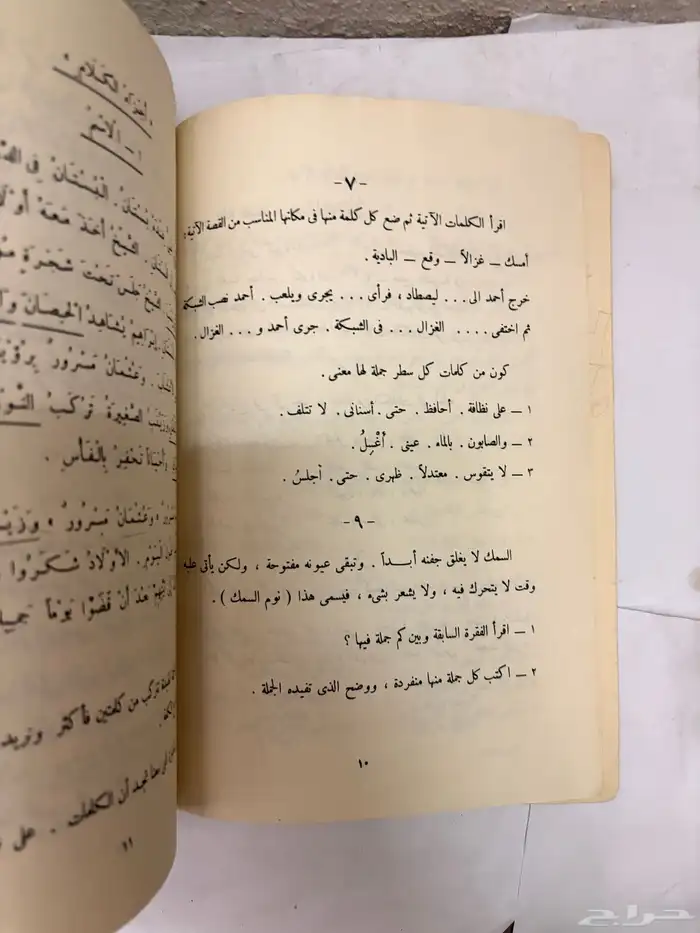 -٧-
اقرأ الكلمات الآتية ثم ضع كل كلمة منها فى مكانها المناسب من القصة الآتية :
أمسك — غزالاً — وقع — البادية .
خرج أحمد الى ... ليصطاد ، فرأى ... يجرى ويلعب . أحمد نصب الشبكة
ثم اختفى .... الغزال ... فى الشبكة . جرى أحمد و ... الغزال .
كون من كلمات كل سطر جملة لها معنى .
١ — على نظافة . أحافظ . حتى . أسنانى . لا تتلف .
٢ — والصابون . بالماء . عينى . أَغْسِلُ .
٣ — لا يتقوس . معتدلاً . ظهرى . حتى . أجلسُ .
-٩-
السمك لا يغلق جفنه أبـداً . وتبقى عيونه مفتوحة ، ولكن يأتى عليه
وقت لا يتحرك فيه ، ولا يشعر بشىء ، فيسمى هذا ( نوم السمك ) .
١ — اقرأ الفقرة السابقة وبين كم جملة فيها ؟
٢ — اكتب كل جملة منها منفردة ، ووضح الذى تفيده الجملة .
١٠
أجزاء الكلام
١ - الاسم
بُسْتَانٌ . البُسْتَانُ فِى
الشَّيْخُ أَخَذَ مَعَهُ
الشَّيْخُ جَلَسَ تَحْتَ شَجَرَةٍ
إِبْرَاهِيمُ يُشَاهِدُ الْحِصَانَ
وَعُثْمَانُ مَسْرُورٌ
الصَّغِيرَةُ تَرْكَبُ
وَأَحْيَاناً تَحْفِرُ بِالْفَأْسِ .
وَعُثْمَانُ مَسْرُورٌ
الْيَوْمَ . الأَوْلَادُ شَكَرُوا
بَعْدَ أَنْ قَضَوْا يَوْماً
من كلمتين فأكثر ونريد
نجد أن الكلمات . على
١١
حراج